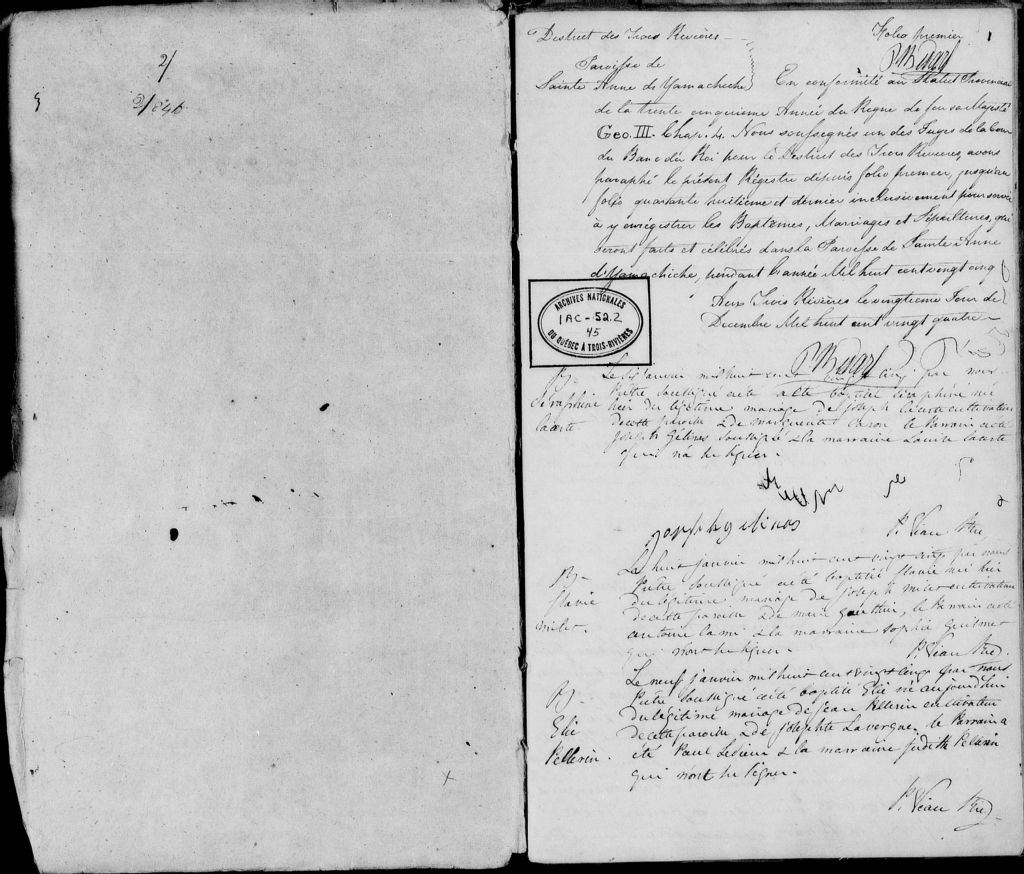 2/
District des Trois Rivières
Folio premier 1
Paroisse de
Sainte Anne d'Yamachiche
En conformité au Statut Provincial
de la trente cinquieme Année du Regne de feu sa Majesté
Geo. III. Chap. 4. Nous soussegnés un des Juges de la Cour
du Banc du Roi pour le District des Trois Rivieres, avons
paraphé le présent Régistre depuis folio premier, jusqu'au
folio quarante huitieme et dernier inclusivement pour servir
à y enrégistrer les Baptêmes, Marriages et Sépultures, qui
seront faits et célébrés dans la Paroisse de Sainte Anne
d'Yamachiche, pendant l'année Mil huit cent vingt cinq
Aux Trois Rivières le vingtieme Jour de
Decembre Mil huit cent vingt quatre
ARCHIVES NATIONALES
1AC-S2.2
45
DU QUÉBEC À TROIS-RIVIÈRES
B.
Séraphine
Lacerte
Le six janvier mil huit cent vingt cinq par nous
Prêtre soussigné a été baptisé Séraphine né
hier du légitime mariage de Joseph Lacerte cultivateur
de cette paroisse & de Marguerite Caron le Parrain a été
Joseph Gélinas soussigné & la marraine Louise Lacerte
qui n'a su signer.
joseph gelinas
P. Véau Ptre
B.
Flavie
Milet.
Le huit janvier mil huit cent vingt cinq par nous
Prêtre soussigné a été baptisé Flavie né hier
du légitime mariage de Joseph Milet cultivateur
de cette paroisse & de Marie Gauthier, le Parrain a été
Antoine Lami & la marraine Sophie
qui n'ont su signer.
P. Véau Ptre.
B.
Elie
Pellerin.
Le neuf janvier mil huit cent vingt cinq par nous
Prêtre soussigné a été baptisé Elie né aujourd'hui
du légitime mariage de Jean Pellerin cultivateur
de cette paroisse & de Josephte Lavergne. le Parrain a
été Paul & la marraine Judith Pellerin
qui n'ont su signer.
P. Véau Ptre